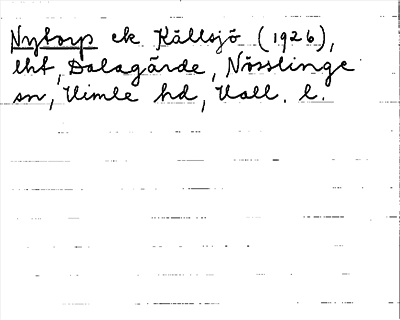 Nytorp ek Källsjö (1926),
lht, Dalagärde, Nösslinge
sn, Himle hd, Hall. l.